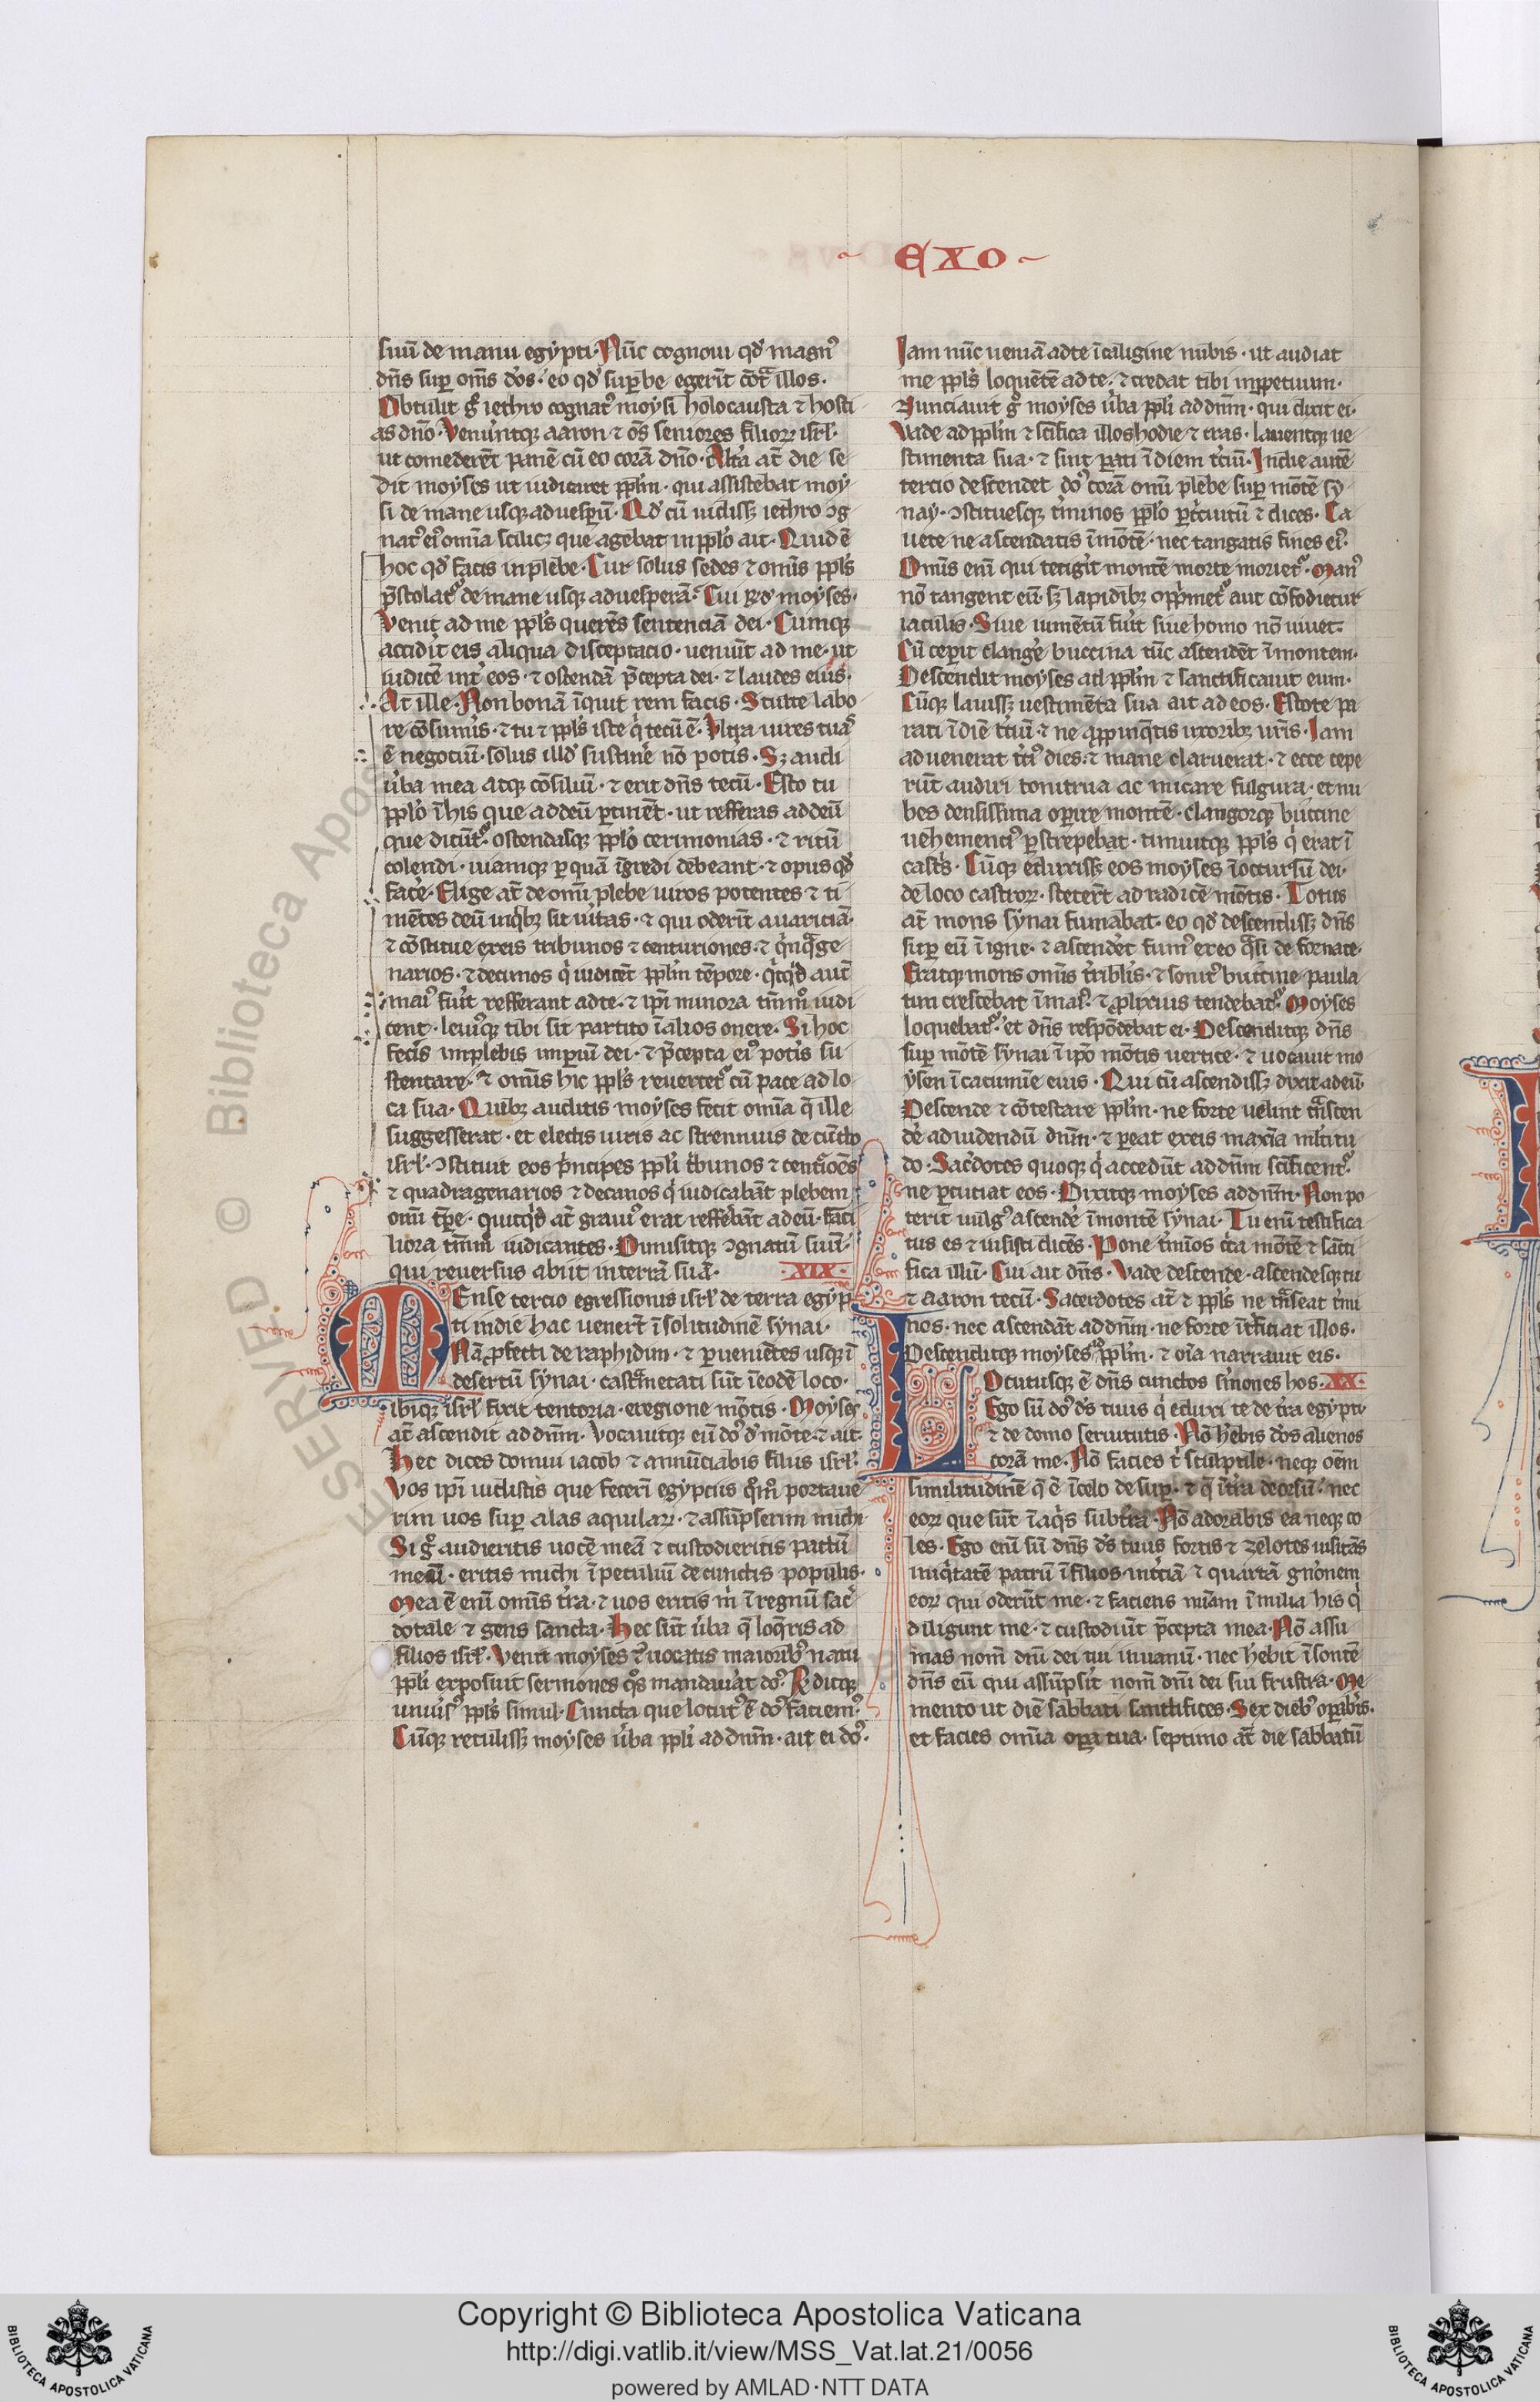 EXO
suū de manu egypti. Nūc cognoui qd' magn᾿
dn̄s sup om̄s d'os. eo qd' supbe egerīt cōt͛ illos.
Obtulit g° iethro cognat᾿ moysi holocausta ⁊ hosti
as dn̄o. Venūntqꝫ aaron ⁊ o͞s seniores filioꝝ isrl'.
ut comederēt panē cū eo corā dn̄o. Alt'a at̄ die se
dit moyses ut iudicaret pplm̄. qui assistebat moy
si de mane usqꝫ ad uesperū. Qd' cū uidissꝫ iethro ɔg
nat᾿ ei᾿ omīa scilicꝫ que agebat in pplo ait. Quid ē
hoc qd' facis in plebe. Cur solus sedes ⁊ om̄is ppl's
p̄stolat᾿ de mane usqꝫ ad uesperā. Cui Rd' moyses.
Venit ad me ppl's querēs sentenciā dei. Cumqꝫ
accidit eis aliqua disceptacio. ueniūt ad me. ut
iudicē int' eos. ⁊ ostendā p̄cepta dei. ⁊ laudes eius.
At ille. Non bonā īquit rem facis. Stulte labo
re cōsumis. ⁊ tu ⁊ ppl's iste q' tecū ē. Ultra uires tuas
ē negociū. solus illd' sustine' nō potis. Sꝫ audi
u'ba mea atqꝫ cōsiliū. ⁊ erit dn̄s tecū. Esto tu
pplo ī his que ad deū ptinēt. ut refferas ad deū
que dicūt᾿. ostendasqꝫ pplo cerimonias. ⁊ ritū
colendi. uiamqꝫ p quā īgredi debeant. ⁊ opus qd'
face'. Elige at̄ de omī plebe uiros potentes ⁊ ti
mētes deū in q'bꝫ sit u'itas. ⁊ qui oderīt auariciā.
⁊ cōstitue ex eis tribunos ⁊ centuriones. ⁊ q'nq͛ge
narios. ⁊ decanos q' iudicēt pplm̄ tēpore. q'cq'd aut̄
mai᾿ fu'it refferant ad te. ⁊ ipī minora tm̄m° iudi
cent. leui᾿qꝫ tibi sit partito ī alios onere. Si hoc
fec'is implebis impiū dei. ⁊ p̄cepta ei᾿ pot'is su
stentare. ⁊ om̄is hic ppl's reuertet᾿ cū pace ad lo
ca sua. Quibꝫ auditis moyses fecit omīa q̄ ille
suggesserat. et electis uiris ac strennuis de cūcto
isrl'. ɔstituit eos p'ncipes ppl'i t'bunos ⁊ cent'ioēs
⁊ quadragenarios ⁊ decanos q' iudicabāt plebem
omī tp̄e. quicq'd at̄ graui᾿ erat reffe'bāt ad eū. faci
liora tm̄m° iudicantes. Dimisitqꝫ ɔgnatū suū.
qui reuersus abiit in terrā suā. .XIX.
MEnse tercio egressionis isrl' de terra egyp
ti in die hac uener̄t ī solitudinē synai.
Nā ꝓfecti de raphidim. ⁊ puenīētes usqꝫ ī
desertū synai. cast͛metati sūt ī eodē loco.
ibiqꝫ isrl' fixit tentoria. eregione mōtis. Moyses
at̄ ascendit ad dn̄m. Vocauitqꝫ eū do᾿ d' mōte. ⁊ ait.
Hec dices domui iacob ⁊ annūciabis filiis isrl'.
Vos ipī uidistis que fecerī egyptiis q͛m° portaue
rim uos sup alas aquilaꝝ. ⁊ assūpserim michi.
Si g° audieritis uocē meā ⁊ custodieritis pactū
meū. eritis michi ī peculiū de cunctis populis.
Mea ē enī om̄is t'ra. ⁊ uos eritis m' ī regnū sac'
dotale ⁊ gens sancta. Hec sūt u'ba q̄ loq̄ris ad
filios isrl'. Venit moyses ⁊ uocatis maiorib᾿ natu
ppl'i exposuit sermones q°s mandau'at do᾿. Rditqꝫ
uniu's᾿ ppl's simul. Cuncta que locut᾿ ē do᾿ faciem᾿.
Cūqꝫ retulissꝫ moyses u'ba ppl'i ad dn̄m. ait ei do᾿.
Iam nūc ueniā ad te ī caligine nubis. ut audiat
me ppl's loquētē ad te. ⁊ credat tibi inppetuum.
Nunciauit g° moyses u'ba ppl'i ad dn̄m. qui dixit ei.
Vade ad pplm̄ ⁊ scīfica illos hodie ⁊ cras. lauentqꝫ ue
stimenta sua. ⁊ sint pati ī diem t'ciū. In die autē
tercio descendet do᾿ corā omī plebe sup mōtē sy
nay. ɔstituesqꝫ t'minos pplo p t'cuitū ⁊ dices. Ca
uete ne ascendatis ī mōtē. nec tangatis fines ei᾿.
Om̄is enī qui tetig'it montē morte moriet᾿. Man᾿
nō tangent eū. sꝫ lapidibꝫ opp'met᾿ aut cōfodietur
iaculis. Siue iumētū fu'it siue homo nō uiuet.
Cū cep'it clange' buccina tūc ascendēt ī montem.
Descendit moyses ad pplm̄ ⁊ sanctificauit eum.
Cūqꝫ lauissꝫ uestimēta sua ait ad eos. Estote pa
rati ī diē t'ciū. ⁊ ne app̄inq̄tis uxoribꝫ ur̄is. Iam
aduenerat t'ci᾿ dies. ⁊ mane claruerat. ⁊ ecce cepe
rūt audiri tonitrua ac micare fulgura. et nu
bes densissima opire montē. clangorqꝫ buccine
uehementi᾿ pstrepebat. timuitqꝫ ppl's q' erat ī
cast'is. Cūqꝫ eduxissꝫ eos moyses ī occursū dei.
de loco castroꝝ. steter̄t ad radicē mōtis. Totus
at̄ mons synai fumabat. eo qd' descendissꝫ dn̄s
sup eū ī igne. ⁊ ascende't fum᾿ ex eo q͛si de fornace.
Eratqꝫ mons om̄is t'ribl'is. ⁊ sonit᾿ buccine paula
tim crescebat ī mai᾿. ⁊ ꝓlixius tendebat᾿. Moyses
loquebat᾿. et dn̄s respōdebat ei. Descenditqꝫ dn̄s
sup mōtē synai ī ip̄o mōtis uertice. ⁊ uocauit mo
ysen ī cacumīe eius. Qui cū ascendissꝫ dixit ad eū.
Descende ⁊ cōtestare pplm̄. ne forte uelint t͛nscen
de' ad uidendū dn̄m. ⁊ peat ex eis maxīa ml'titu
do. Sac'dotes quoqꝫ q' accedūt ad dn̄m scīficent᾿.
ne pcutiat eos. Dixitqꝫ moyses ad dn̄m. Non po
terit uulg᾿ ascende' ī montē synai. Tu enī testifica
tus es ⁊ iusisti dicēs. Pone t'mīos c'ca mōtē ⁊ sācti
fica illū. Cui ait dn̄s. Vade descende. ascendesqꝫ tu
⁊ aaron tecū. Sacerdotes at̄ ⁊ ppl's ne t͛nseat t'mi
nos. nec ascendāt ad dn̄m. ne forte īt'ficiat illos.
Descenditqꝫ moyses ad pplm̄. ⁊ oīa narrauit eis.
LOcutusqꝫ ē dn̄s cunctos s'mones hos. .XX.
Ego sū do᾿ d's tuus q' eduxi te de t'ra egypti.
⁊ de domo seruitutis. Nō h'ebis d'os alienos
corā me. Nō facies t' sculptile. neqꝫ oēm
similitudinē q̄ ē ī celo desup. ⁊ q̄ ī t'ra deorsū. nec
eoꝝ que sūt ī aq'is sub t'ra. Nō adorabis ea neqꝫ co
les. Ego enī sū dn̄s d's tuus fortis ⁊ zelotes uisitās
iniq'tatē patrū ī filios. ī t'ciā ⁊ quartā gn̄onem
eoꝝ qui oderūt me. ⁊ faciens mīam ī milia his q'
diligunt me. ⁊ custodiūt p̄cepta mea. Nō assu
mas nom̄ dn̄i dei tui in uanū. nec h'ebit īsontē
dn̄s eū qui assūps'it nom̄ dn̄i dei sui frustra. Me
mento ut diē sabbati sanctifices. Sex dieb᾿ opab'is.
et facies omīa opa tua. septimo at̄ die sabbatū
Copyright © Biblioteca Apostolica Vaticana
http://digi.vatlib.it/view/MSS_Vat.lat.21/0056
powered by AMLAD·NTT DATA
BIBLIOTECA APOSTOLICA VATICANA
BIBLIOTECA APOSTOLICA VATICANA